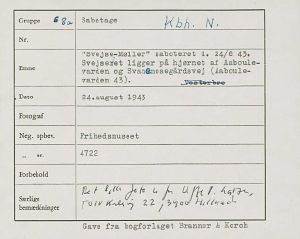 Gruppe 68a Sabotage Kbh. N.
Nr.
Emne "Svejse-Møller" saboteret d. 24/8 43.
Svejseret ligger på hjørnet af Aaboule-
varden og Svanemosegårdsvej (Aaboule-
varden 43). Vesterbro
Dato 24.august 1943
Fotograf
Neg. opbev. Frihedsmuseet
" nr. 4722
Forbehold
Særlige bemærkninger Det lille foto er fra
22, 3400 Hillerød
Gave fra bogforlaget Branner & Korch